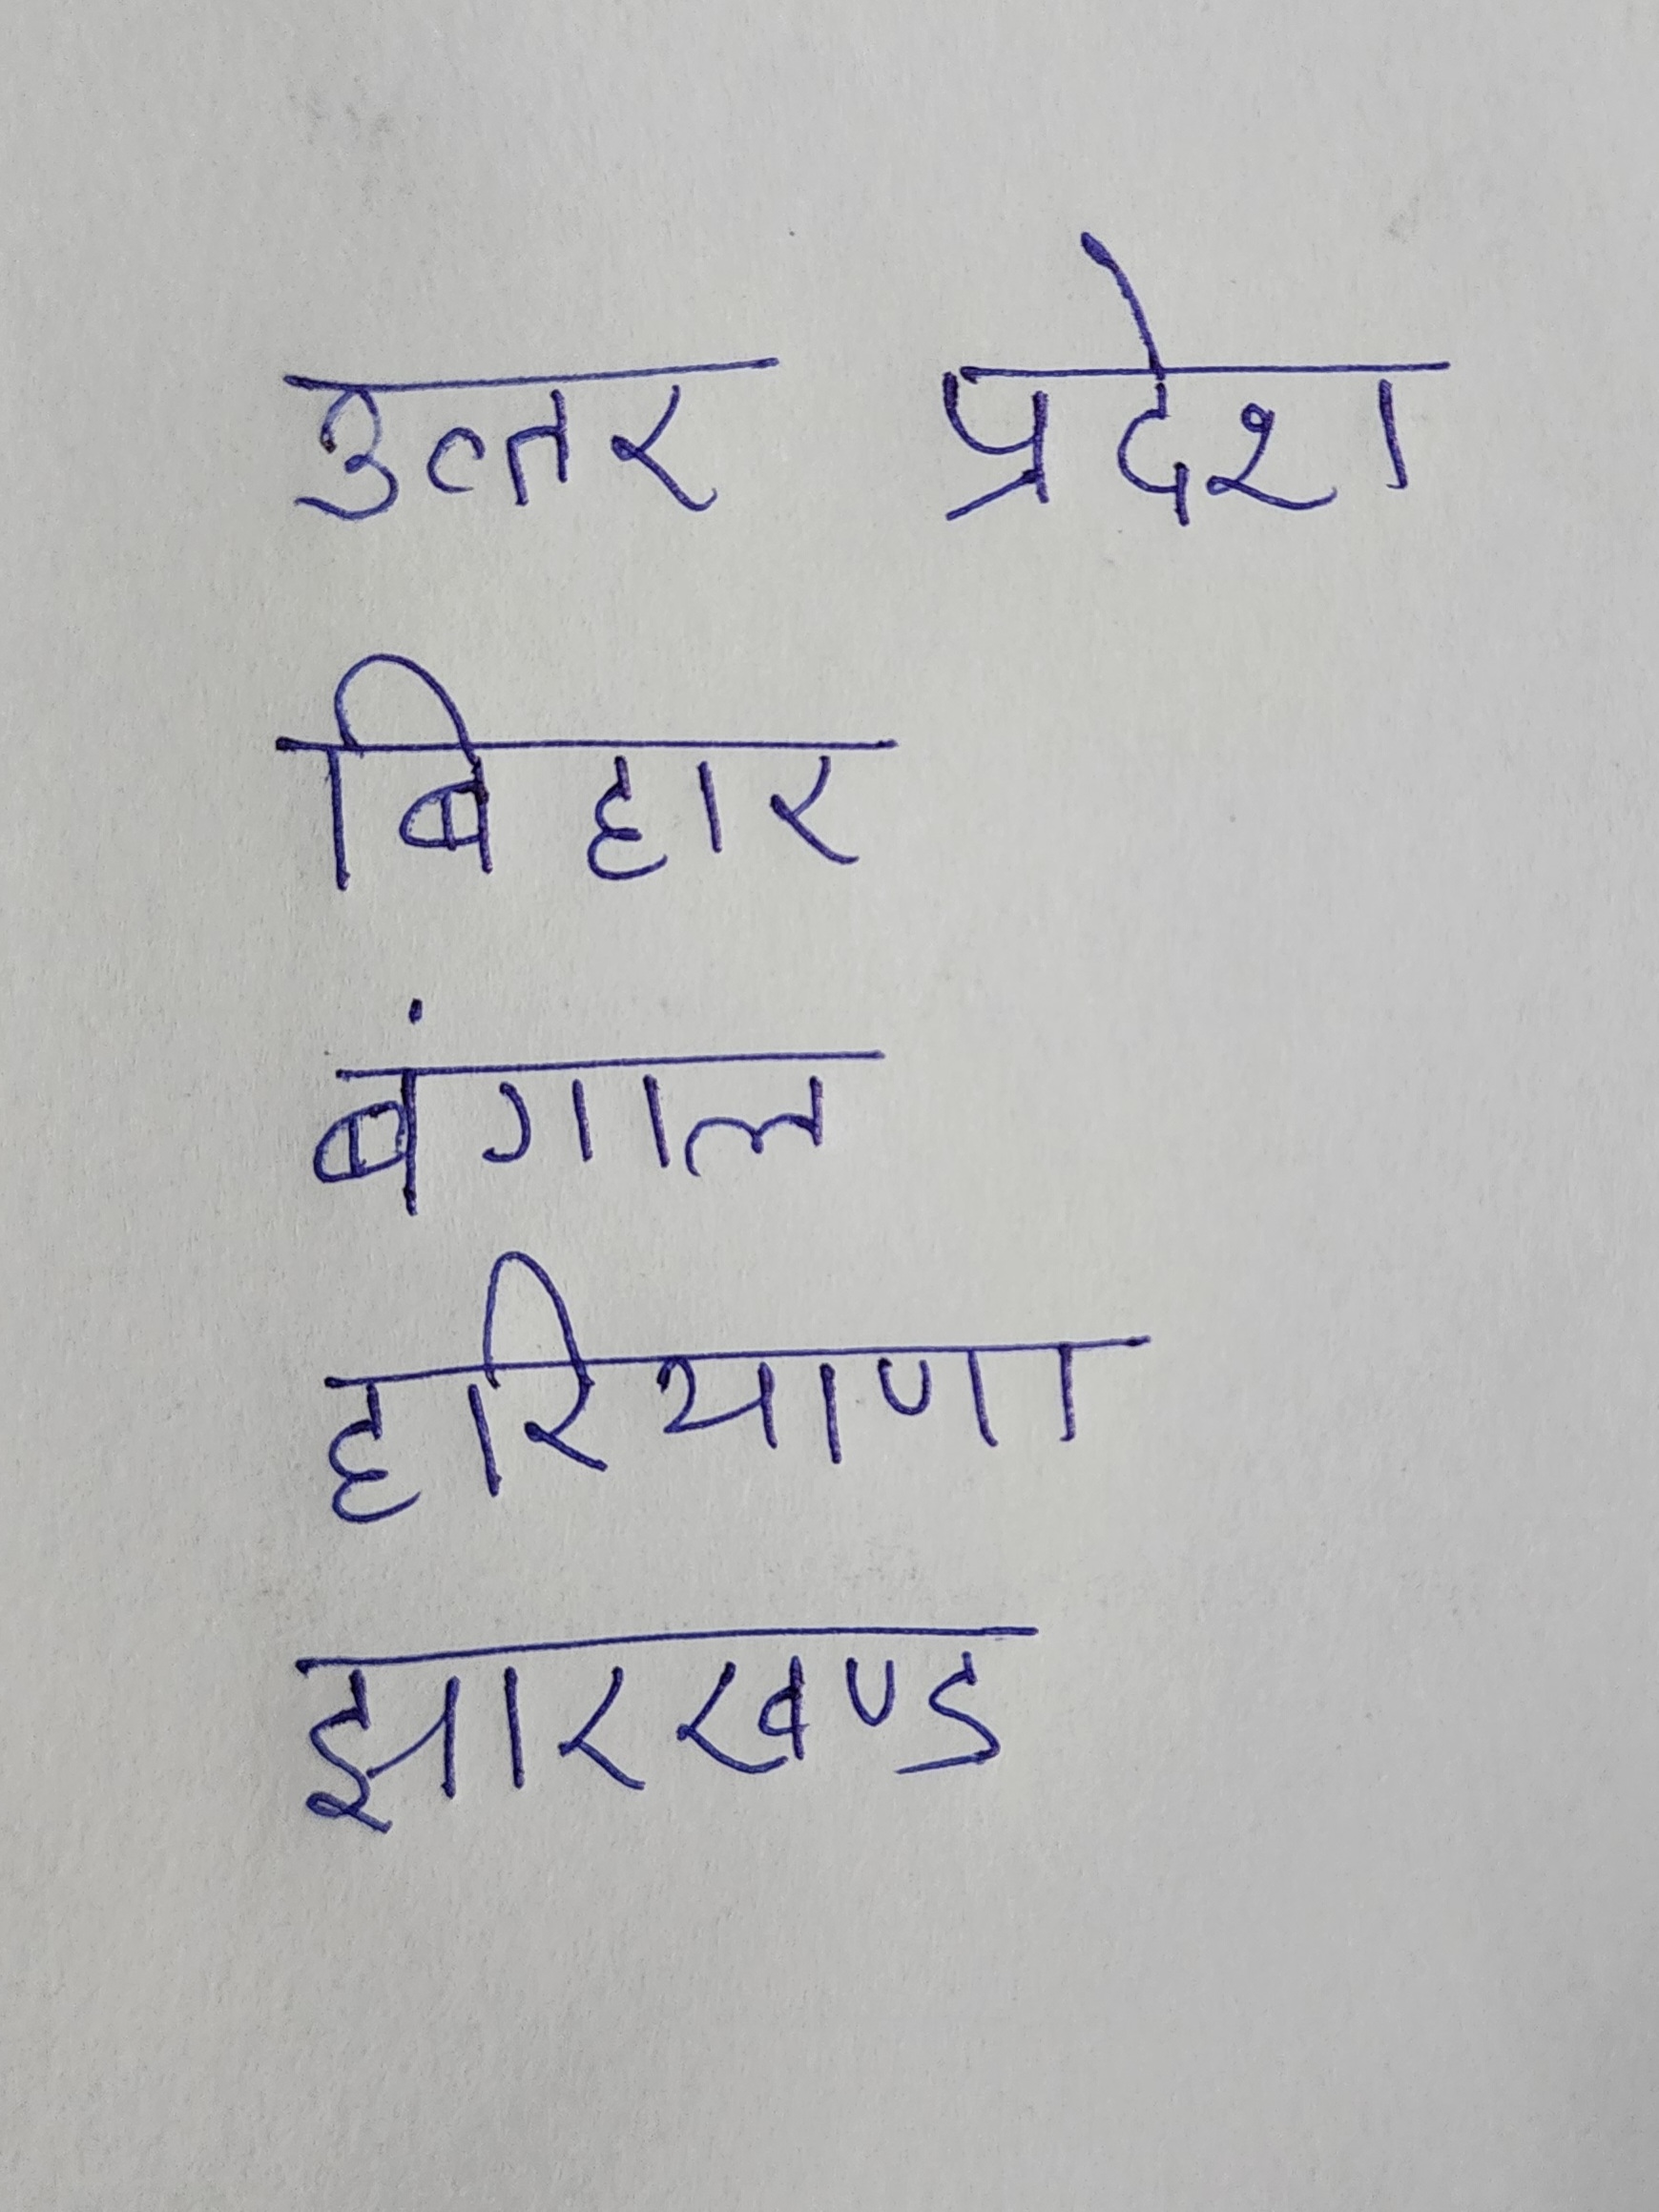 उत्तर प्रदेश
बिहार
बंगाल
हरियाणा
झारखण्ड